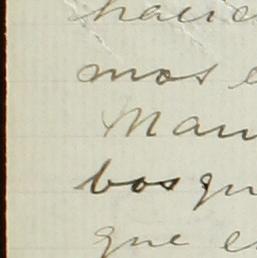 hace
mos e
Man
bosqu
que e